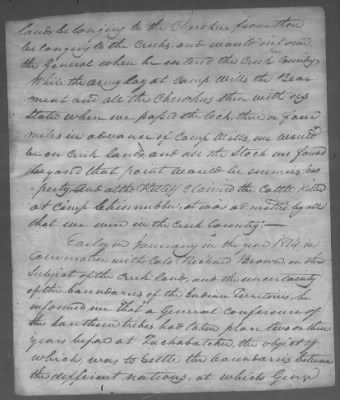 lands belonging to the Cherokees from those
belonging to the Creeks, and would inform
the General when he entered the Creek Country.
While the army lay at Camp Wills the Bear
meat and all the Cherokees then with us
Stated when we passed the Creek three or four
miles in advance of Camp Wills, we would
be on Creek lands, and all the Stock we found
beyond that point would be enemies pro
perty, and altho Ratliff claimed the Cattle killed
at Camp it was admitted by all
that we were in the Creek Country.—
Early in January in the year 1814 in
Conversation with Colo Richard Brown, on the
Subject of the Creek lands, and the uncertainty
of the boundaries of the Indian Territories, he
informed me that a General Conference of
the Southern tribes had taken place two or three
years before at Tuchabatchee, the object of
which, was to settle the boundaries between
the different nations, at which George